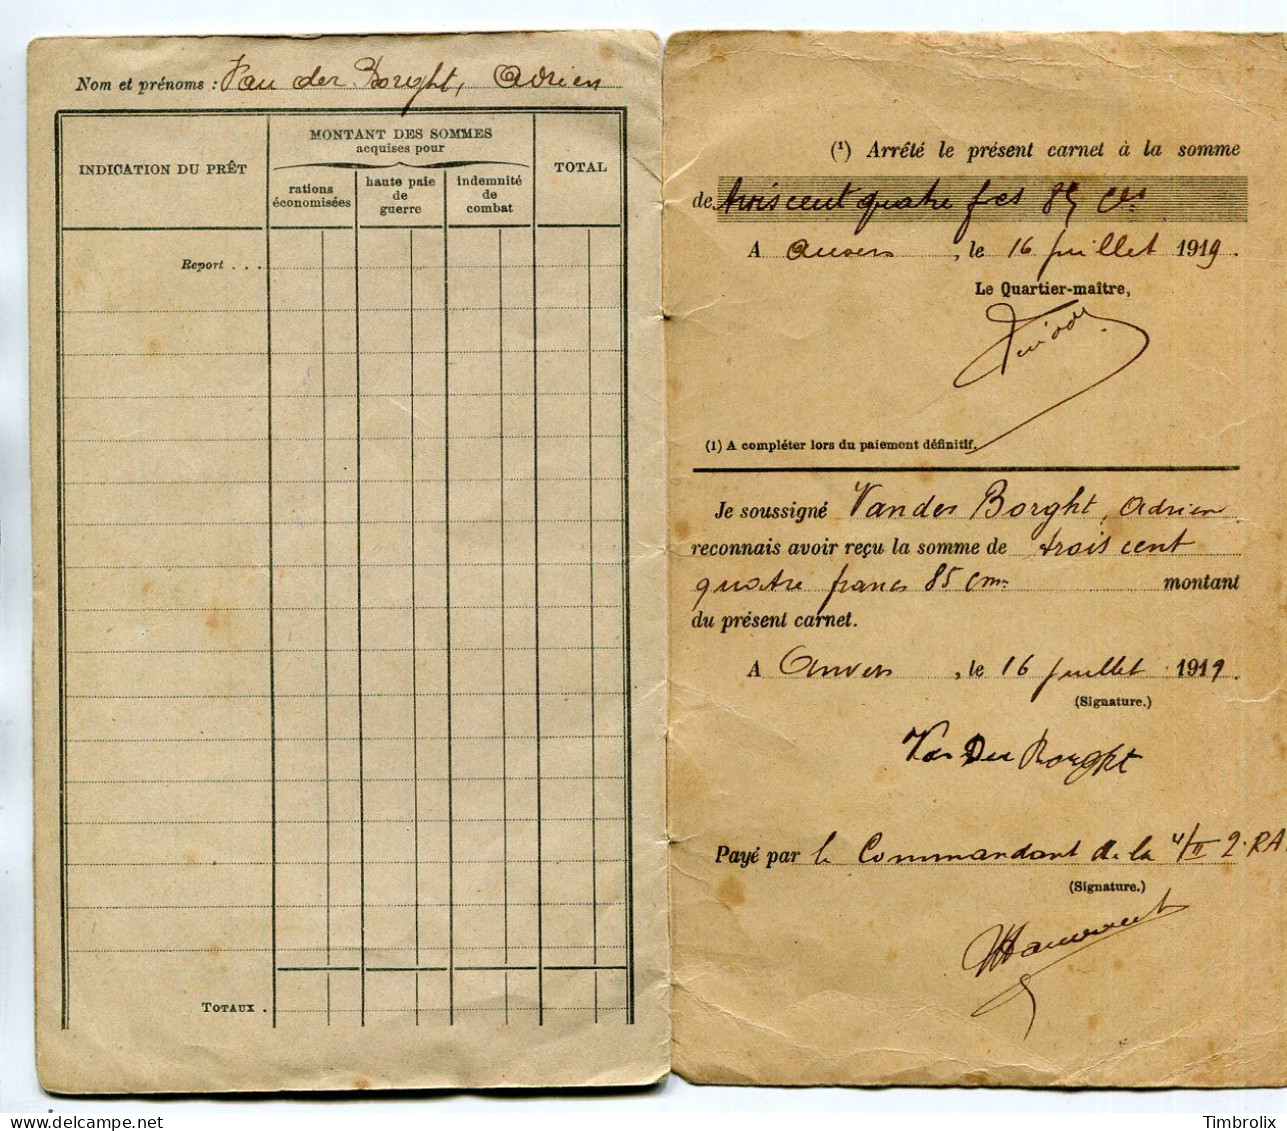 Nom et prénoms : Van der Borght, Adrien
INDICATION DU PRÊT
MONTANT DES SOMMES
acquises pour
rations
économisées
haute paie
de
guerre
indemnité
de
combat
TOTAL
Report . . .
TOTAUX .
(1) Arrêté le présent carnet à la somme
de trois cent quatre fcs 85 cts
A Anvers , le 16 juillet 1919.
Le Quartier-maître,
(1) A compléter lors du paiement définitif.
Je soussigné Van der Borght, Adrien
reconnais avoir reçu la somme de trois cent
quatre francs 85 cms montant
du présent carnet.
A Anvers , le 16 juillet 1919.
(Signature.)
Van Der Borght
Payé par le Commandant de la 4/II 2 RA.
(Signature.)
Timbrolix